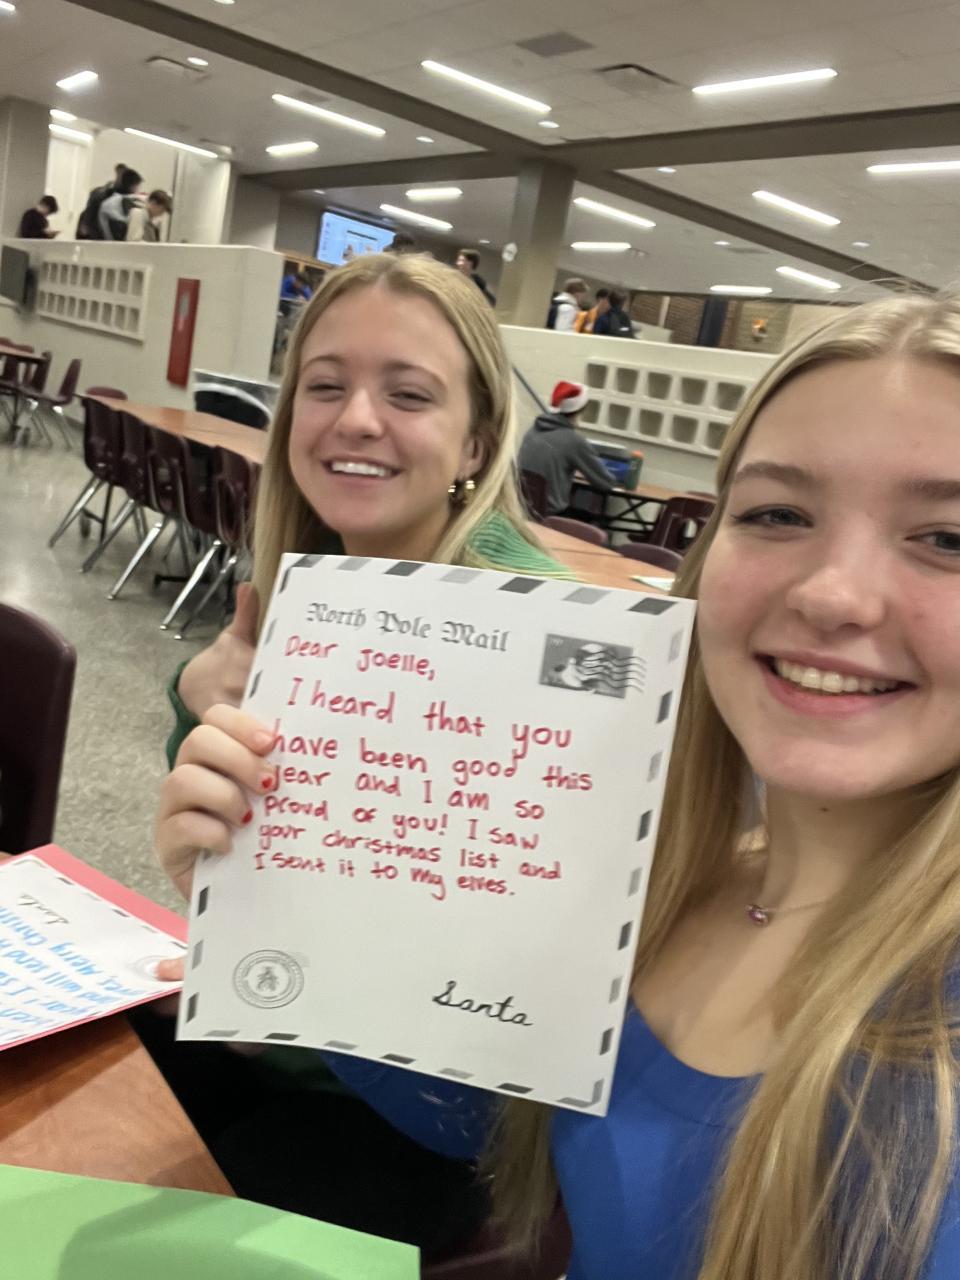 North Pole Mail
Dear Joelle,
I heard that you
have been good this
year and I am so
proud of you! I saw
your christmas list and
I sent it to my elves.
Santa
Santa
Merry Christ
will send